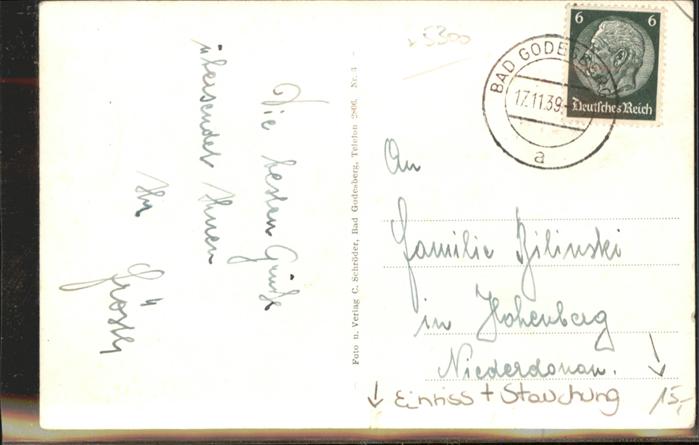 Die besten Grüße
übersendet Ihnen
Ihr
Foto u. Verlag C. Schröder, Bad Godesberg, Telefon 2806. Nr. 3
5300
BAD GODESBERG
17.11.39
a
6 6
Deutsches Reich
An
Familie Bilinski
in Hohenberg
Niederdonau.
↓ Einriss + Stauchung 15,-